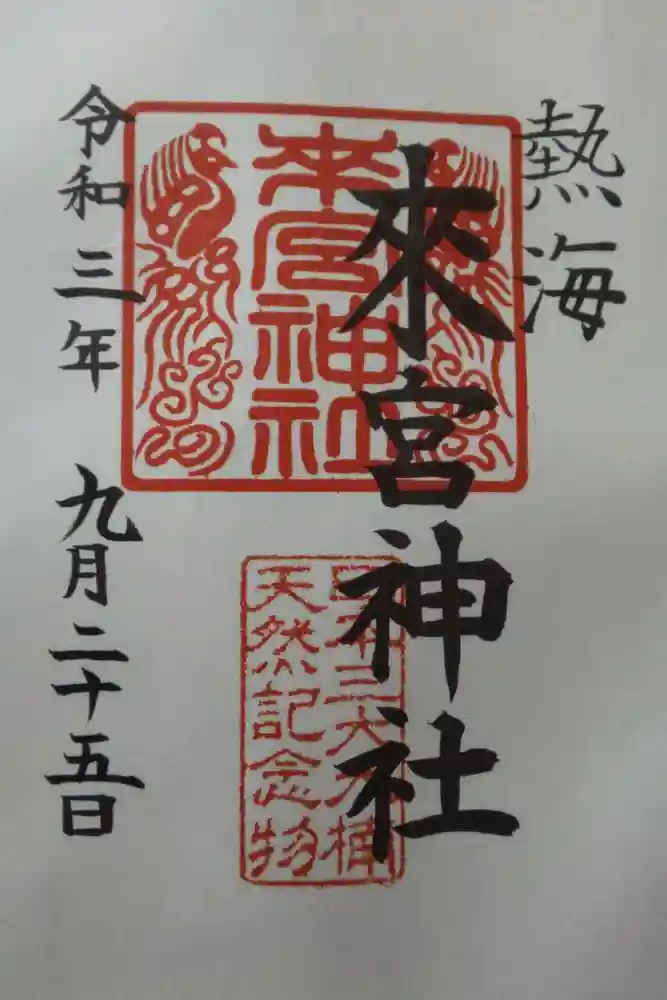 熱海
來宮神社
令和三年 九月二十五日
來宮神社
日本三大大楠
天然記念物